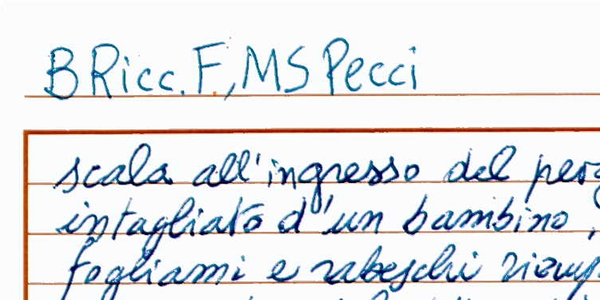 B Ricc. F., MS Pecci
scala all'ingresso del
intagliato d'un bambino,
fogliami e rabeschi